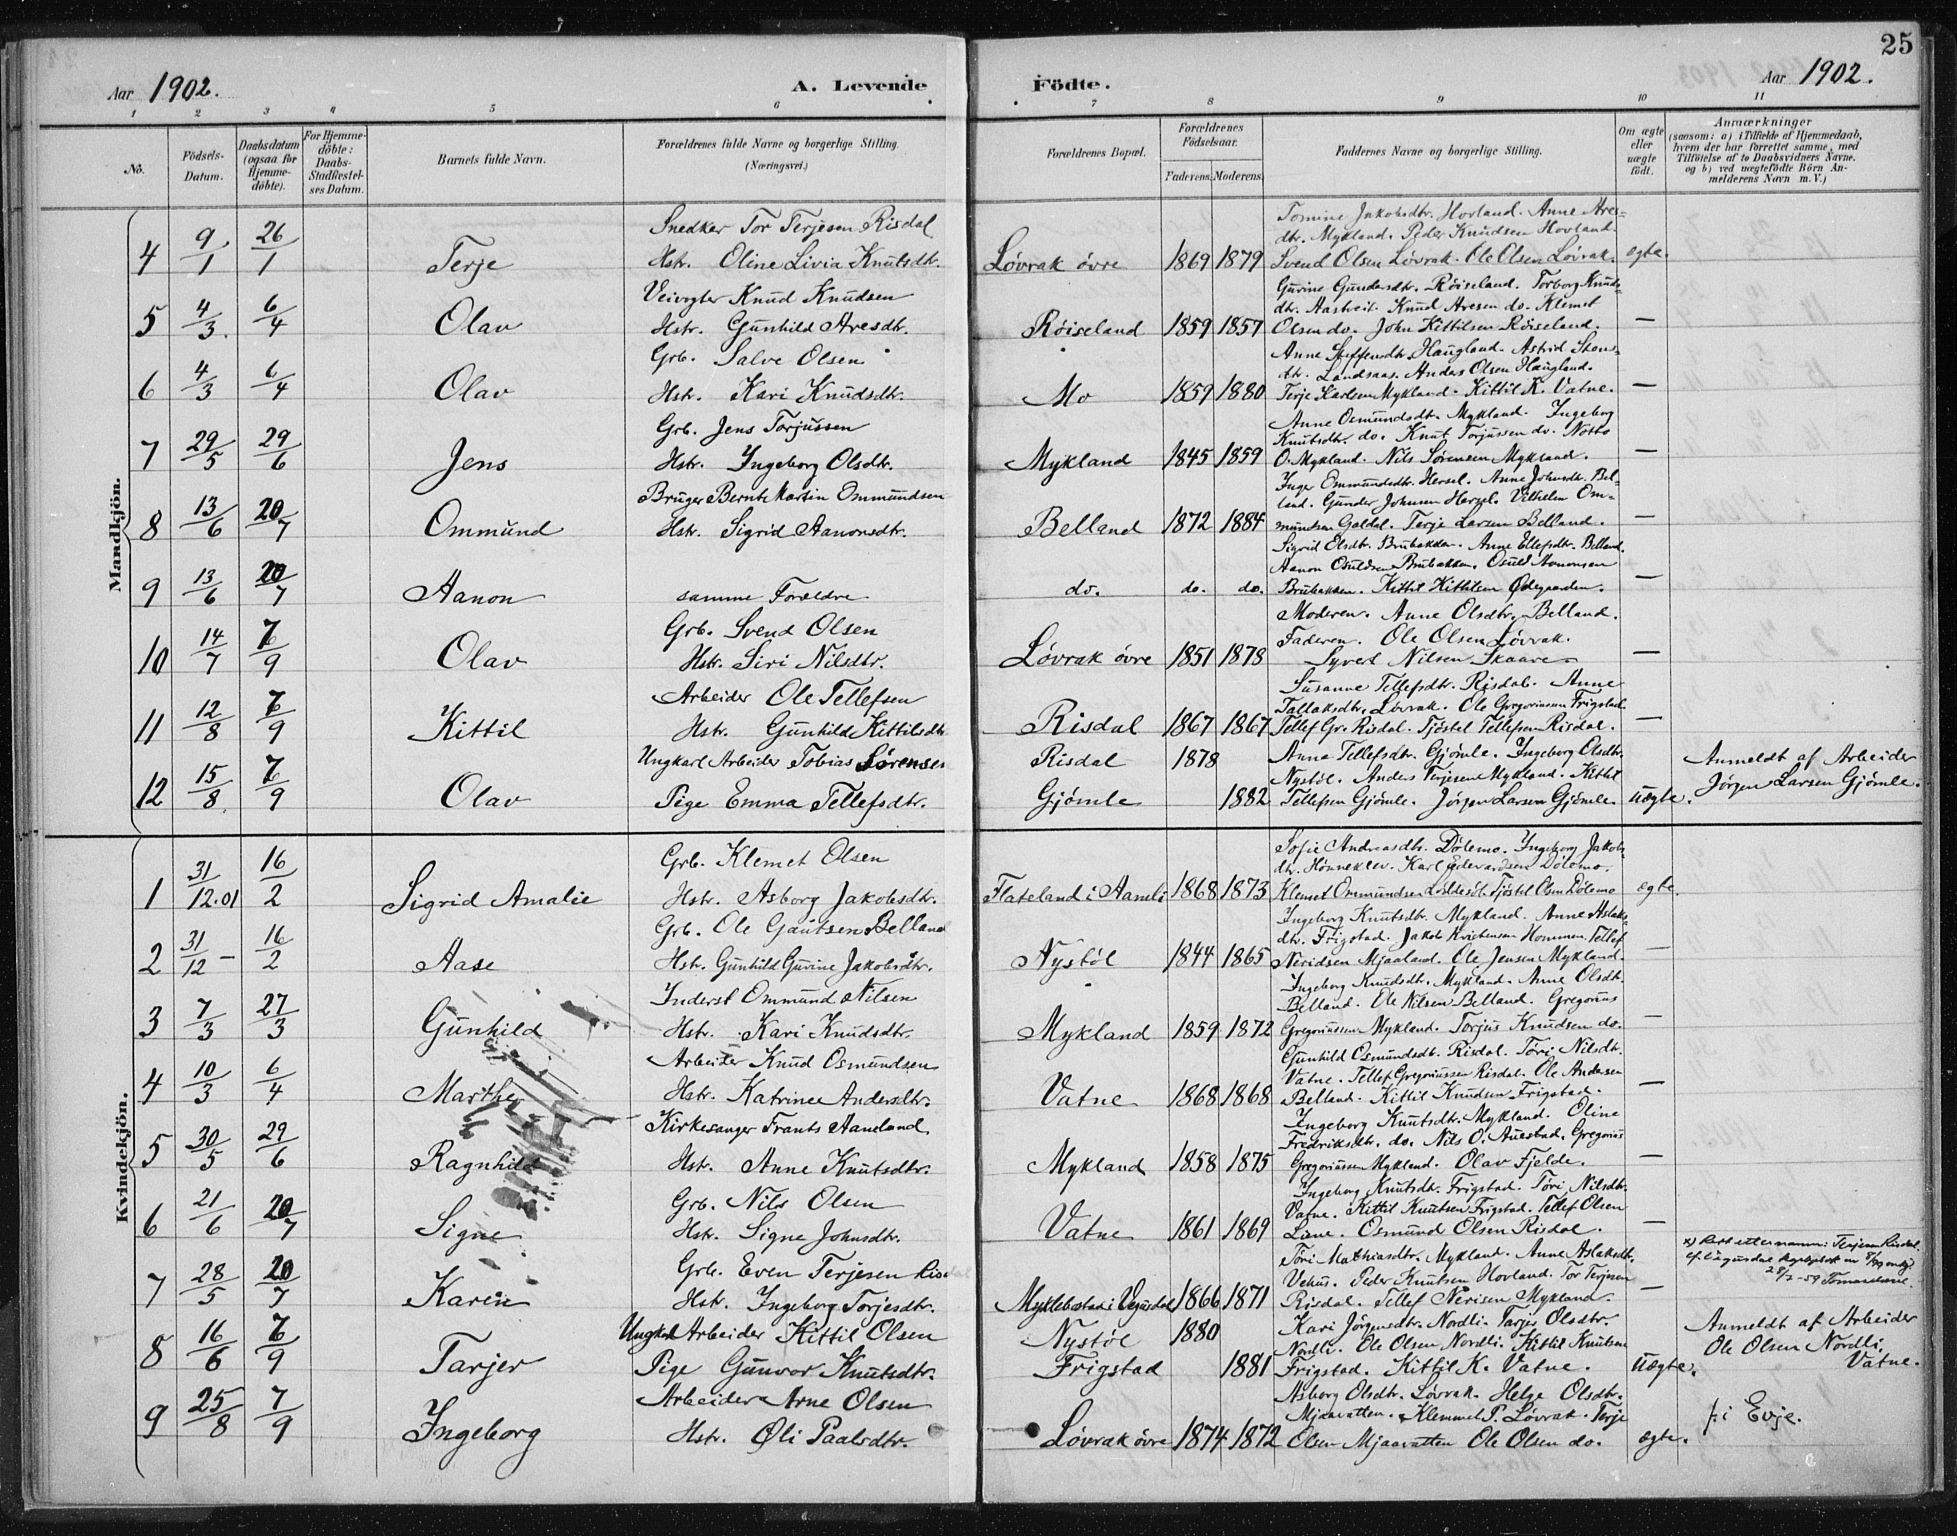 25
Aar 1902.
A. Levende Födte.
Aar 1902.
1 2 3 4 5 6 7 8 9 10 11
No.
Födsels-Datum.
Daabsdatum (ogsaa for Hjemme-döbte).
For Hjemme-döbte: Daabs-Stadfæstel-ses Datum.
Barnets fulde Navn.
Forældrenes fulde Navne og borgerlige Stilling.
(Næringsvei.)
Forældrenes Bopæl.
Forældrenes Födselsaar.
Faderens. Moderens.
Faddernes Navne og borgerlige Stilling.
Om ægte eller uægte födt.
Anmærkninger
(saasom: a) i Tilfælde af Hjemmedaab,
hvem der har forrettet samme, med
Tilföielse af to Daabsvidners Navne.
og b) ved uægtefödte Börn An-
melderens Navn m. V.)
Mandkjön.
Snedker Tor Terjesen Risdal
Tomine Jakobsdtr. Hovland. Anne Ares-
dtr. Mykland. Peder Knudsen Hovland.
4 9/1 26/1 Terje Hstr. Oline Livia Knutsdtr. Løvrak øvre 1869 1879 Svend Olsen Løvrak. Ole Olsen Løvrak. ægte.
Veivogter Knud Knudsen
Gurine Gundersdtr. Røiseland. Torborg Knuds-
dtr. Aastveit. Knud Aresen do. Klemet
5 4/3. 6/4 Olav Hstr. Gunhild Aresdtr. Røiseland 1859 1857 Olsen do. John Kittilsen Røiseland. —
Grb. Salve Olsen
Anne Steffensdtr. Haugland. Astrid
dtr. Landsaas. Anders Olsen Haugland.
6 4/3 6/4 Olav Hstr. Kari Knudsdtr. Mo 1859 1880 Terje Karlsen Mykland. Kittil K. Vatne. —
Grb. Jens Torjussen
Anne Osmundsdtr. Mykland. Ingeborg
Knutsdtr. do. Knut Torjussen do. Notto
7 29/5 29/6 Jens Hstr. Ingeborg Olsdtr. Mykland 1845 1859 O. Mykland. Nils Sørensen Mykland. —
Bruger Bernt Martin Ommundsen
Inger Ommundsdtr. Hersel. Anne Johnsdtr. Bel-
land. Gunder Johnsen Hersel. Vilhelm Om-
8 13/6 20/7 Ommund Hstr. Sigrid Aanonsdtr. Belland 1872 1884 mundsen Galdal. Terje Larsen Belland. —
Sigrid Olsdtr. Brubakken. Anne Ellefsdtr. Belland.
Aanon Osuldsen Brubakken. Osuld Aanonsen
9 13/6 20/7 Aanon samme Forældre do. do. do. Brubakken. Kittil Kittilsen Ødegaarden. —
Grb. Svend Olsen
Moderen. Anne Olsdtr. Belland.
Faderen. Ole Olsen Løvrak.
10 14/7 7/9 Olav Hstr. Siri Nilsdtr. Løvrak øvre 1851 1878 Syvert Nilsen Skaare —
Arbeider Ole Tellefsen
Susanne Tellefsdtr. Risdal. Anne
Tallaksdtr. Løvrak. Ole Gregoriussen Frigstad.
11 12/8 7/9 Kittil Hstr. Gunhild Kittilsdtr. Risdal 1867 1867 Tellef Gr. Risdal. Tjöstel Tellefsen Risdal. —
Ungkarl Arbeider Tobias Sørensen Risdal 1878 Anna Tellefsdtr. Gjömle. Ingeborg Olsdtr. Anmeldt af Arbeider
Nystøl. Anders Terjesen Mykland. Kittil Jørgen Larsen Gjömle.
12 15/8. 7/9 Olav Pige Emma Tellefsdtr. Gjömle 1882 Tellefsen Gjömle. Jørgen Larsen Gjömle. Uægte.
Kvindekjön.
Grb. Klemet Olsen
Sofie Andreasdtr. Dölemo. Ingeborg Jakobs-
dtr. Hønneklev. Karl Edevardsen Dölemo.
1 31/12.01 16/2 Sigrid Amalie Hstr. Asborg Jakobsdtr. Flateland i Aamli 1868 1873 Klemet Ommundsen Tjöstel Olsen Dölemo ægte.
Grb. Ole Gautsen Belland
Ingeborg Knutsdtr. Mykland. Anne Aslaks-
dtr. Frigstad. Jakob Kristensen Hommen. Tellef
2 31/12 - 16/2 Aase Hstr. Gunhild Gurine Jakobsdtr. Nystøl 1844 1865 Neridsen Mjaaland. Ole Jensen Mykland. —
Inderst Ommund Nilsen
Ingeborg Knudsdtr. Mykland. Anne Olsdtr.
Belland. Ole Nilsen Belland. Gregorius
3 7/3 27/3 Gunhild Hstr. Kari Knudsdtr. Mykland 1859 1872 Gregoriussen Mykland. Torjus Knudsen do. —
Arbeider Knud Osmundsen
Gunhild Osmundsdtr. Risdal. Tøri Nilsdtr.
Vatne. Tellef Gregoriussen Risdal. Ole Andersen
4 10/3 6/4 Marthe Hstr. Katrine Andersdtr. Vatne 1868 1868 Belland. Kittil Knudsen Frigstad. —
Kirkesanger Frants Aaneland
Ingeborg Knutsdtr. Mykland. Oline
Fredriksdtr. do. Nils O. Auesbad. Gregorius
5 30/5 29/6 Ragnhild Hstr. Anne Knutsdtr. Mykland 1858 1875 Gregoriussen Mykland. Olav Fjelde. —
Grb. Nils Olsen
Ingeborg Knutsdtr. Frigstad. Tøri Nilsdtr.
Vatne. Kittil Knutsen Frigstad. Tellef Olsen
6 21/6 20/7 Signe Hstr. Signe Johnsdtr. Vatne 1861 1869 Lane. Osmund Olsen Risdal. —
x) Rett etternamn: Terjesen Risdal.
Grb. Even Terjesen Risdal
Tøri Mathiasdtr. Mykland. Anne Aslaksdtr.
28/2-59
Vehus. Peder Knutsen Hovland. Tor Terjesen
7 28/5 20/7 Karen Hstr. Ingeborg Torjesdtr. Myklebostad i Vegusdal 1866 1871 Risdal. Tellef Nerisen Mykland. —
Ungkarl Arbeider Kittil Olsen Nystøl 1880 Kari Jörgensdtr. Nordli. Tarjer Olsdtr. Anmeldt af Arbeider
Nordli. Ole Olsen Nordli. Kittil Knutsen Ole Olsen Nordli,
8 16/6 7/9 Tarjer Pige Gunvor Knutsdtr. Frigstad 1881 Frigstad. Kittil K. Vatne. Uægte. Vatne.
Arbeider Arne Olsen
Asborg Olsdtr. Løvrak. Helge Olsdtr.
Mjaavatten. Klemmet P. Løvrak. Terje f: i Evje.
9 25/8 7/9 Ingeborg Hstr. Øli Paalsdtr. Løvrak øvre 1874 1872 Olsen Mjaavatten Ole Olsen do. ægte.